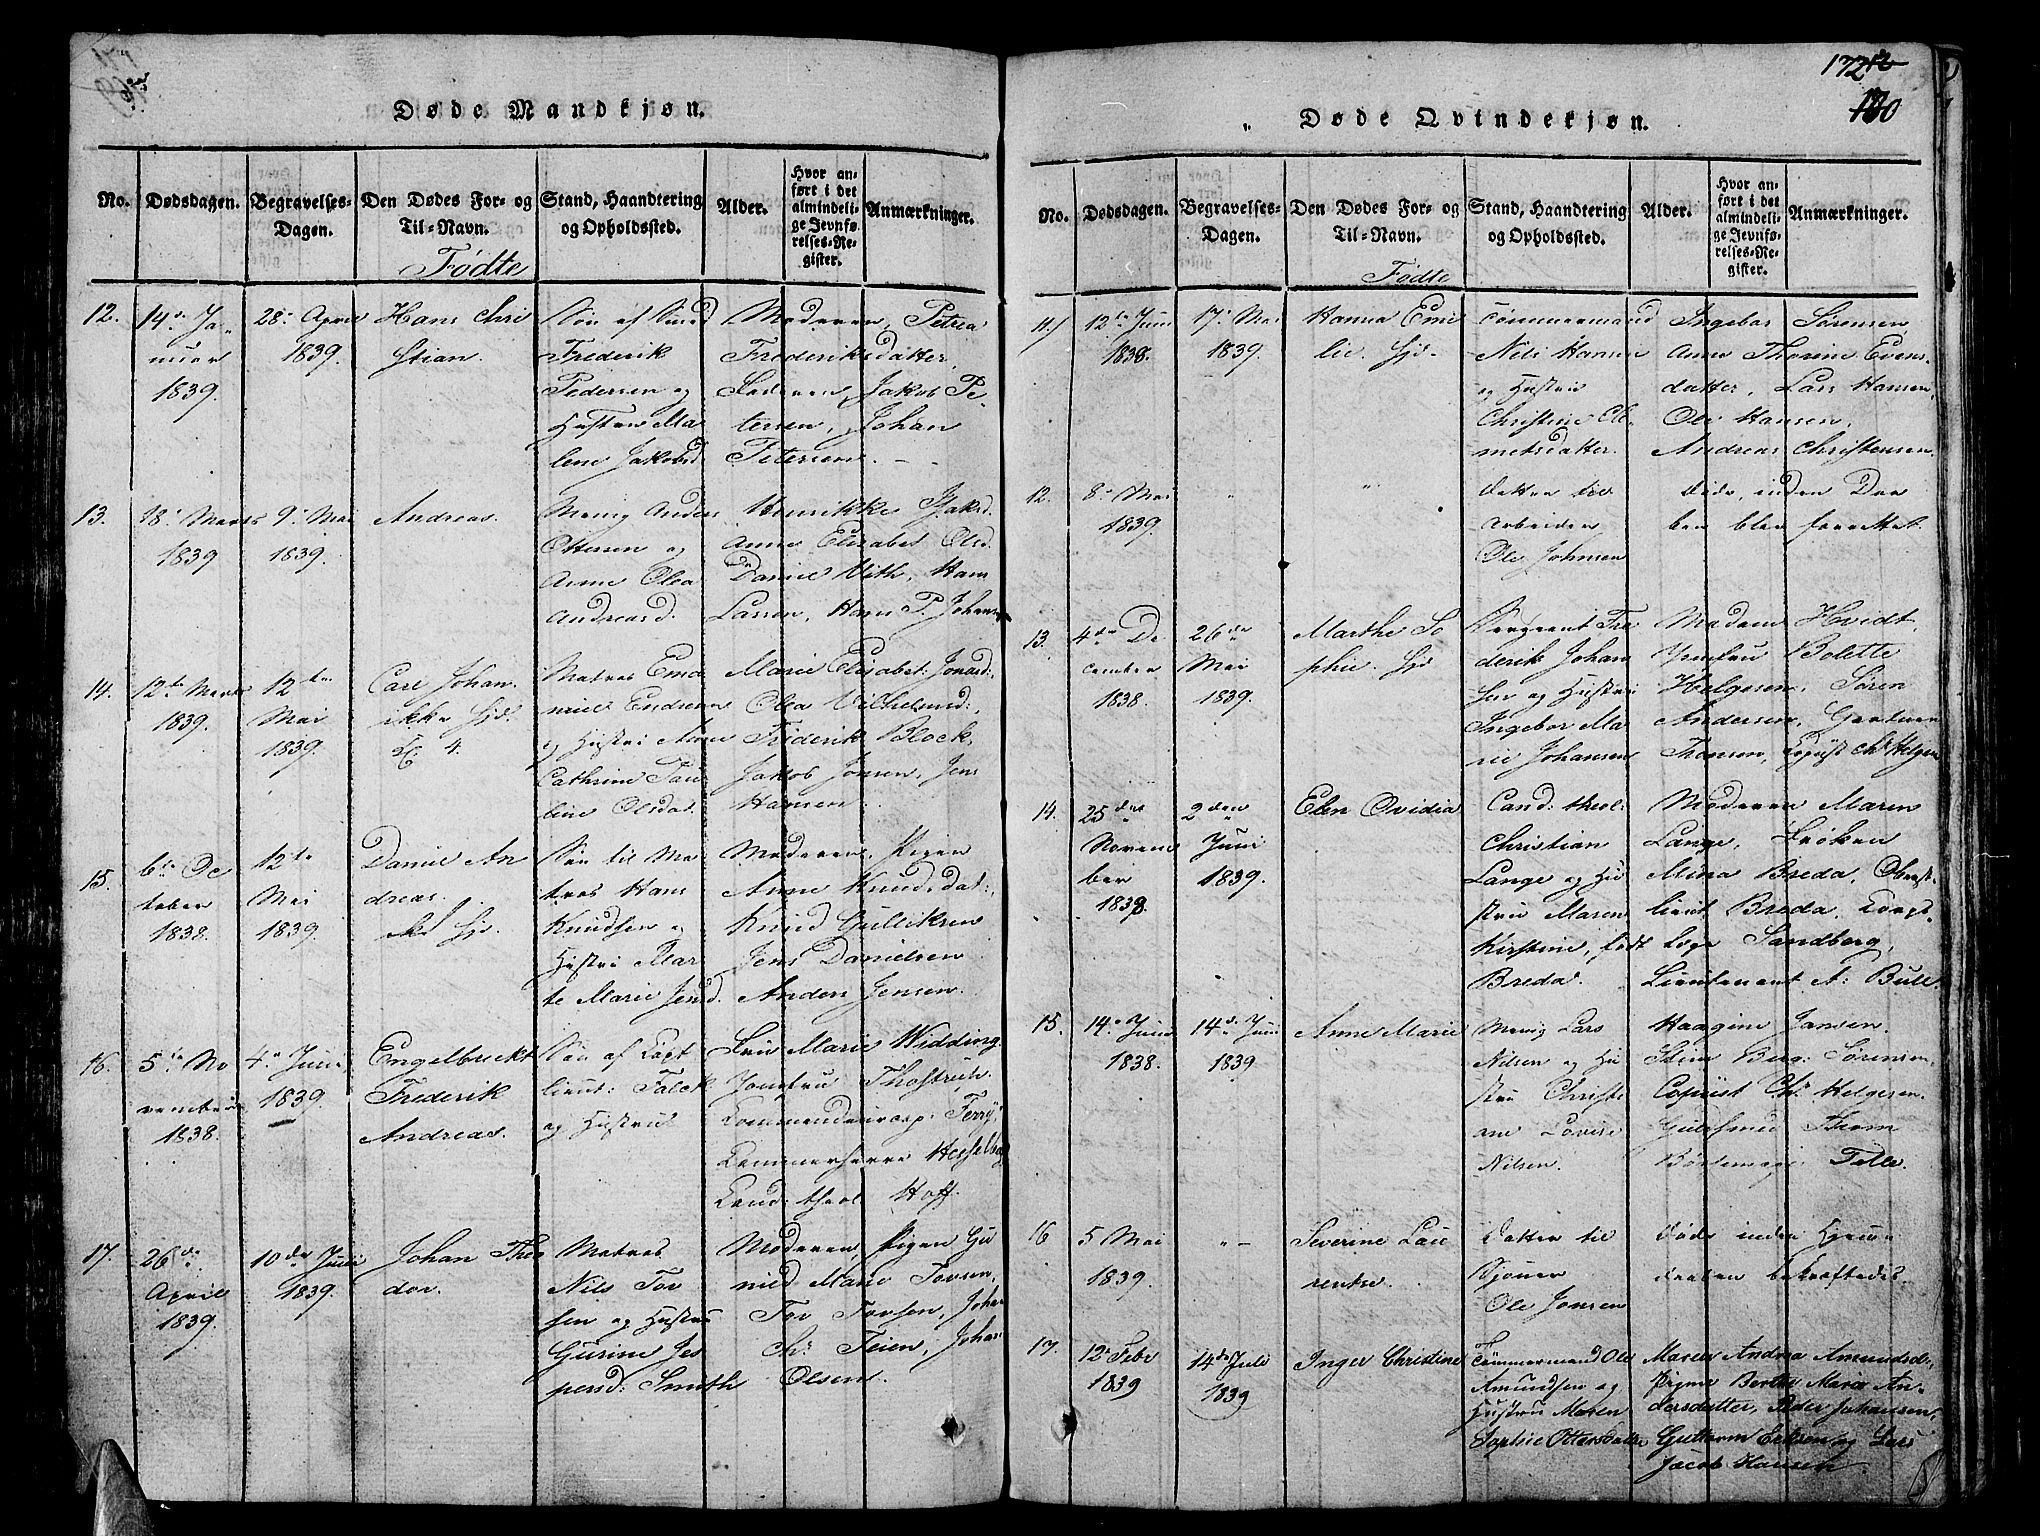 Døde Mandkjøn.
No. Dødsdagen. Begravelses-Dagen. Den Dødes For- og Til-Navn. Stand, Haandtering og Opholdssted. Alder. Hvor anført i det almindelige Jevnførelses-Register. Anmærkninger.
Fødte
12. 14de Januar 1839. 28. April 1839. Hans Christian.
Frederik Pedersen og Hustru Malene Jakobsd.
Moderen, Petrea Frederiksdatter, Jakob Petersen, Johan Petersen.
13. 18. Marts 1839 9. Mai 1839. Andreas.
Ottersen og Anne Olea Andreasd.
Henrikke Isaksd. Anne Elisabet Olsd. Daniel Vith, Hans Larsen, Hans P. Johans
14. 12te Marts 1839. 12te Mai 1839. Carl Johan. ikke hjd. 4.
Matros Emanuel Endresen og Hustru Anne Cathrine Pauline Olsdat.
Marie Elisabet Jonasd: Olea Vilhelmsd:, Friderik Block, Jakob Jonsen, Jens Hansen.
15. 6te October 1838. 12te Mai 1839. Daniel Andreas. hjd.
Søn til Matros Hans Knudsen og Hustru Marte Marie Jensd.
Moderen, Pigen Anne Knudsdat: Knud Gulliksen Jens Danielsen Anders Jensen.
16. 5te November 1838. 4. Juni 1839. Engelbreckt Frederik Andreas.
Søn af Capt lieut: Falck og Hustru
Fru Marie Widding Jomfru Thostrup. Kommandeurcap: Ferry, Kammerherre Hesselberg Cand. theol Hoff.
17. 26de April 1839. 10de Juni 1839. Johan Theodor.
Matros Nils Torsen og Hustru Gurine Jespersd: Smith
Moderen, Pigen Gunild Marie Torsen, Tor Torsen, Johan Chr. Feien, Johan Olsen.
172
180
Døde Qvindekjøn.
No. Dødsdagen. Begravelses-Dagen. Den Dødes For- og Til-Navn. Stand, Haandtering og Opholdssted. Alder. Hvor anført i det almindelige Jevnførelses-Register. Anmærkninger.
Fødte
11. 12te Juni 1838. 17. Mai 1839. Hanna Emilie. hjd.
Tømmermand Nels Hansen og Hustru Christine Clemetsdatter.
Ingebor Sørensen, Anne Thorine Evensdatter, Lars Hansen, Ole Hansen, Andreas Christensen.
12. 8. Mai 1839. " "
Datter til Arbeider Ole Johnsen
Døde, inden Daaben blev forrettet.
13. 4de December 1838. 26de Mai 1839. Marthe Sophie. hjd
Sergeant Frederik Johansen og Hustru Ingebor Marie Johansen
Madam Hvidt, Jomfru Bolette Helgesen, Søren Andersen, Gartner Thonsen, Copiist Chr. Helgesen
14. 25de November 1838. 2den Juni 1839. Elen Ovidia
Cand. theol: Christian Lange og Hustru Maren Kirstine, født Breda.
Moderen Maren Lange, Frøken Mina Breda, Oberstlieut Breda. Korpslæge Sandberg, Lieutenant A. Bull.
15. 14. Juni 1838. 14de Juni 1839 Anne Marie
Menig Lars Nilsen og Hustru Christiane Lovise Nilsen.
Haagine Jansen. Stine Berg: Sørensen Copiist Chr. Helgesen. Guldsmed Thom Børsemager Telle.
16 5 Mai 1839. " - Severine Laurentse.
Datter til Sjouer Ole Jonsen
Døde inden Hjemmedaaben bekræftedes.
17. 12 Febr 1839 14de Juli 1839 Inger Christine
Tømmermand Ole Amundsen og Hustru Maren Sophie Ottersdatter
Maren Andrea Amundsd., Pigen Berthe Marie Andersdatter, Peder Johansen, Guttorm Eriksen og Lars Jacob Hansen.